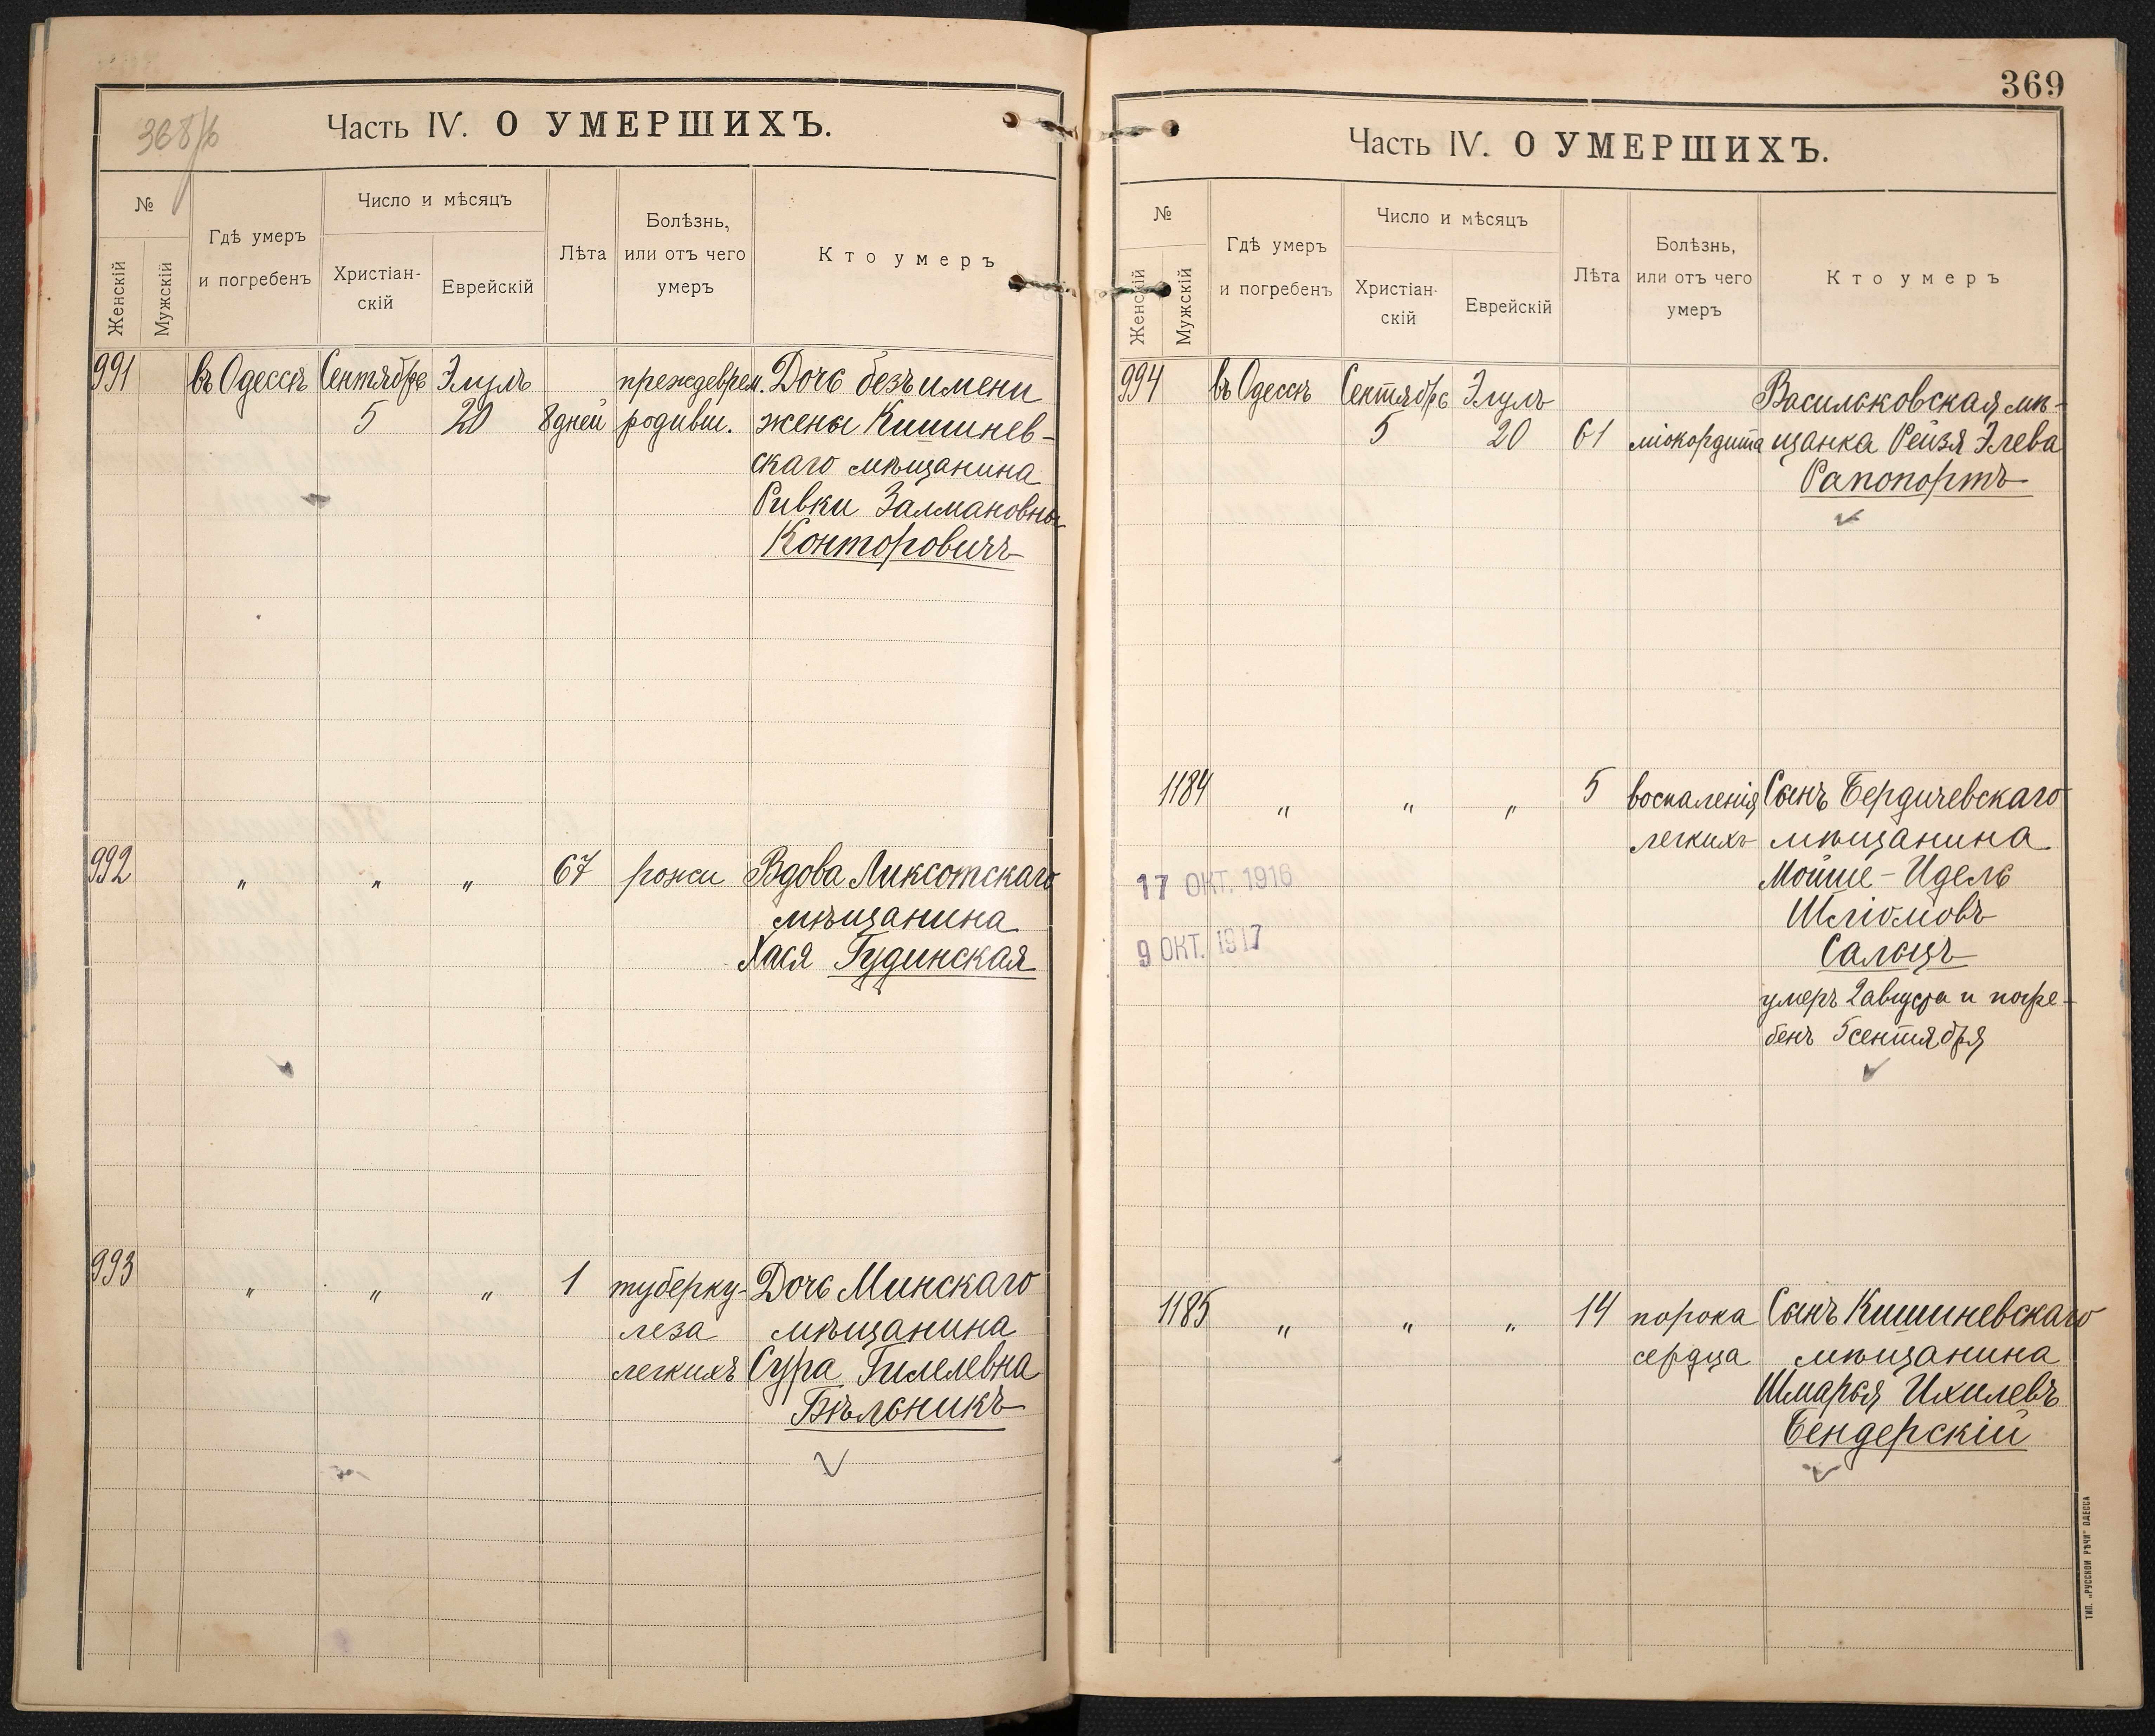 368/б
Часть IV. О УМЕРШИХЪ.
№
Женскій
Мужскій
Гдѣ умеръ
и погребенъ
Число и мѣсяцъ
Христіан-
скій
Еврейскій
Лѣта
Болѣзнь,
или отъ чего
умеръ
Кто умеръ
991 въ Одессѣ Сентябрь Элулъ преждеврем. Дочь безъ имени
5 20 8 дней родивш. жены Кишинев-
скаго мѣщанина
Ривки Залмановны
Конторовичъ
992 " " " 67 рожи Вдова Ликсотскаго
мѣщанина
Хася Гудинская
993 " " " 1 туберку- Дочь Минскаго
леза мѣщанина
легкихъ Сура Гилелевна
Бѣльникъ
369
Часть IV. О УМЕРШИХЪ.
№
Женскій
Мужскій
Гдѣ умеръ
и погребенъ
Число и мѣсяцъ
Христіан-
скій
Еврейскій
Лѣта
Болѣзнь,
или отъ чего
умеръ
Кто умеръ
994 въ Одессѣ Сентябрь Элулъ Васильковская мѣ-
5 20 61 міокардита щанка Рейзя Элева
Рапопортъ
1184 " " " 5 воспаленія Сынъ Бердичевскаго
легкихъ мѣщанина
Мойше-Идель
Шліомовъ
Сальцъ
умеръ 2 августа и погре-
бенъ 5 сентября
17 ОКТ. 1916
9 ОКТ. 1917
1185 " " " 14 порока Сынъ Кишиневскаго
сердца мѣщанина
Шмарья Ихилевъ
Бендерскій
ТИП. „РУССКОЙ РѢЧИ" ОДЕССА